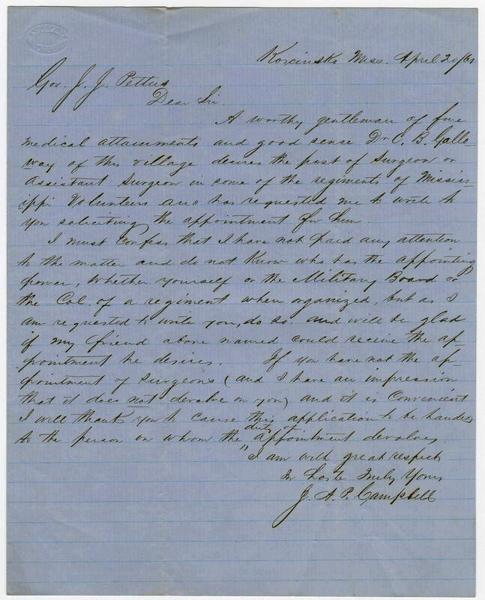 Kosciusko Miss. April 20/61
Gov. J. J. Pettus
Dear Sir.
A worthy gentleman of fine
medical attainments and good sense Dr C. B. Gallo
way of this village desires the post of Surgeon or
Assistant Surgeon in some of the regiments of Missis-
ippi Volunteers and has requested me to write to
you soliciting the appointment for him.
I must confess that I have not paid any attention
to the matter and do not know who has the appointing
power, whether yourself or the Military Board or
the Col. of a regiment when organized, but as I
am requested to write you, do so. and will be glad
if my friend above named could receive the ap-
pointment he desires. If you have not the ap-
pointment of Surgeons (and I have an impression
that it does not devolve on you) and it is convenient
I will thank you to cause this application to be handed
to the person on whom the duty of appointment devolves
I am with great respect
In haste Truly Yours
J. A. P. Campbell